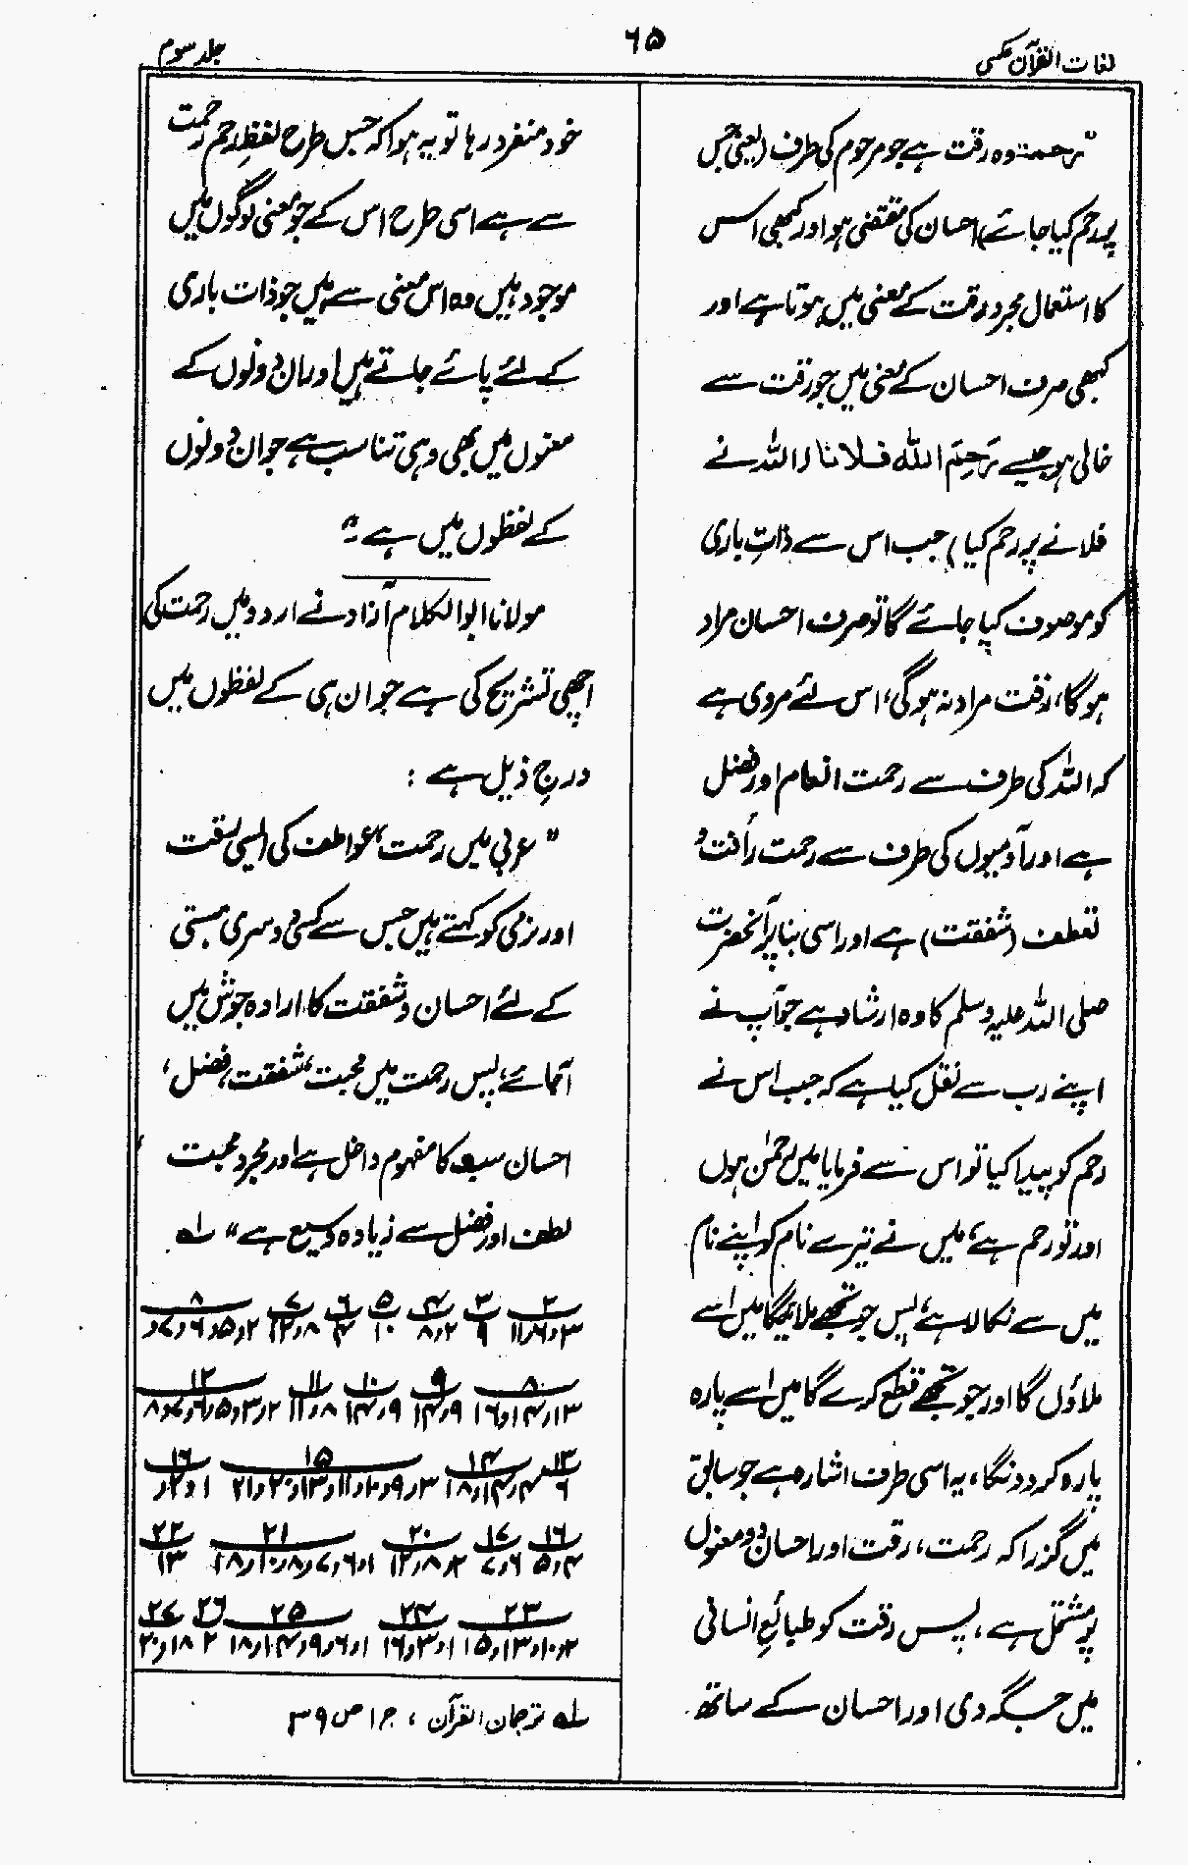 لغات القرآن عکسی
۶۵
جلد سوم
"رحمت وہ رقت ہے جو مرحوم کی طرف (یعنی جس
پر رحم کیا جائے) احسان کی مقتضی ہو اور کبھی اس
کا استعمال مجرد رقت کے معنی میں ہوتا ہے اور
کبھی صرف احسان کے معنی میں جو رقت سے
خالی ہو جیسے رَحِمَ اللّٰہ فلانا (اللہ نے
فلانے پر رحم کیا) جب اس سے ذاتِ باری
کو موصوف کیا جائے گا تو صرف احسان مراد
ہوگا، رقت مراد نہ ہوگی، اس لئے مروی ہے
کہ اللہ کی طرف سے رحمت انعام اور فضل
ہے اور آدمیوں کی طرف سے رحمت رأفت و
تعطف (شفقت) ہے اور اسی بنا پر آنحضرت
صلی اللہ علیہ وسلم کا وہ ارشاد ہے جو آپ نے
اپنے رب سے نقل کیا ہے کہ جب اس نے
رحم کو پیدا کیا تو اس سے فرمایا میں رحمٰن ہوں
اور تو رحم ہے، میں نے تیرے نام کو اپنے نام
میں سے نکالا ہے، پس جو تجھے ملائیگا میں اسے
ملاؤں گا اور جو تجھے قطع کرے گا میں اسے پارہ
پارہ کردونگا، یہ اسی طرف اشارہ ہے جو سابق
میں گزرا کہ رحمت، رقت اور احسان دو معنوں
پر مشتمل ہے، پس رقت کو طبائعِ انسانی
میں جگہ دی اور احسان کے ساتھ
خود منفرد رہا تو یہ ہوا کہ جس طرح لفظِ رحم رحمت
سے ہے اسی طرح اس کے جو معنی لوگوں میں
موجود ہیں وہ اس معنی سے ہیں جو ذات باری
کے لئے پائے جاتے ہیں اور ان دونوں کے
معنوں میں بھی وہی تناسب ہے جو ان دونوں
کے لفظوں میں ہے۔"
مولانا ابوالکلام آزاد نے اردو میں رحمت کی
اچھی تشریح کی ہے جو ان ہی کے لفظوں میں
درجِ ذیل ہے:
"عربی میں رحمت عواطف کی ایسی رقت
اور نرمی کو کہتے ہیں جس سے کسی دوسری ہستی
کے لئے احسان و شفقت کا ارادہ جوش میں
آجائے، پس رحمت میں محبت، شفقت، فضل،
احسان سب کا مفہوم داخل ہے اور مجرد محبت
لطف اور فضل سے زیادہ وسیع ہے" لہ
۲ ۳ ۴ ۵ ۶ ۷ ۸
۳و۶و۱۱ ۹ ۲و۸ ۱۰ ۴ ۸و۱۲ ۲و۵و۶و۷و
۸ ۹ ۱۰ ۱۱ ۱۲
۱۳و۱۴و۱۶ ۹و۱۴ ۹و۱۴ ۸و۱۱ ۲و۳و۵و۶و۷و۸
۱۳ ۱۴ ۱۵ ۱۶
۶ ۴و۱۴و۱۸ ۳و۹و۲و۱۱و۱۳و۲۰و۲۱ ۱و۲و
۱۶ ۱۷ ۲۰ ۲۱ ۲۲
۴و۵ ۶و۷ ۲و۸و۱۲ ۱و۶و۷و۸و۱۰و۱۸ ۱۳
۲۳ ۲۴ ۲۵ ۲۶ ۲۷
۲و۱۰و۱۳و۱۵ ۱و۳و۱۶ ۱و۶و۹و۱۴و۱۸ ۲ ۱۸و۲۰
لہ ترجمان القرآن، ج۱ ص ۳۹